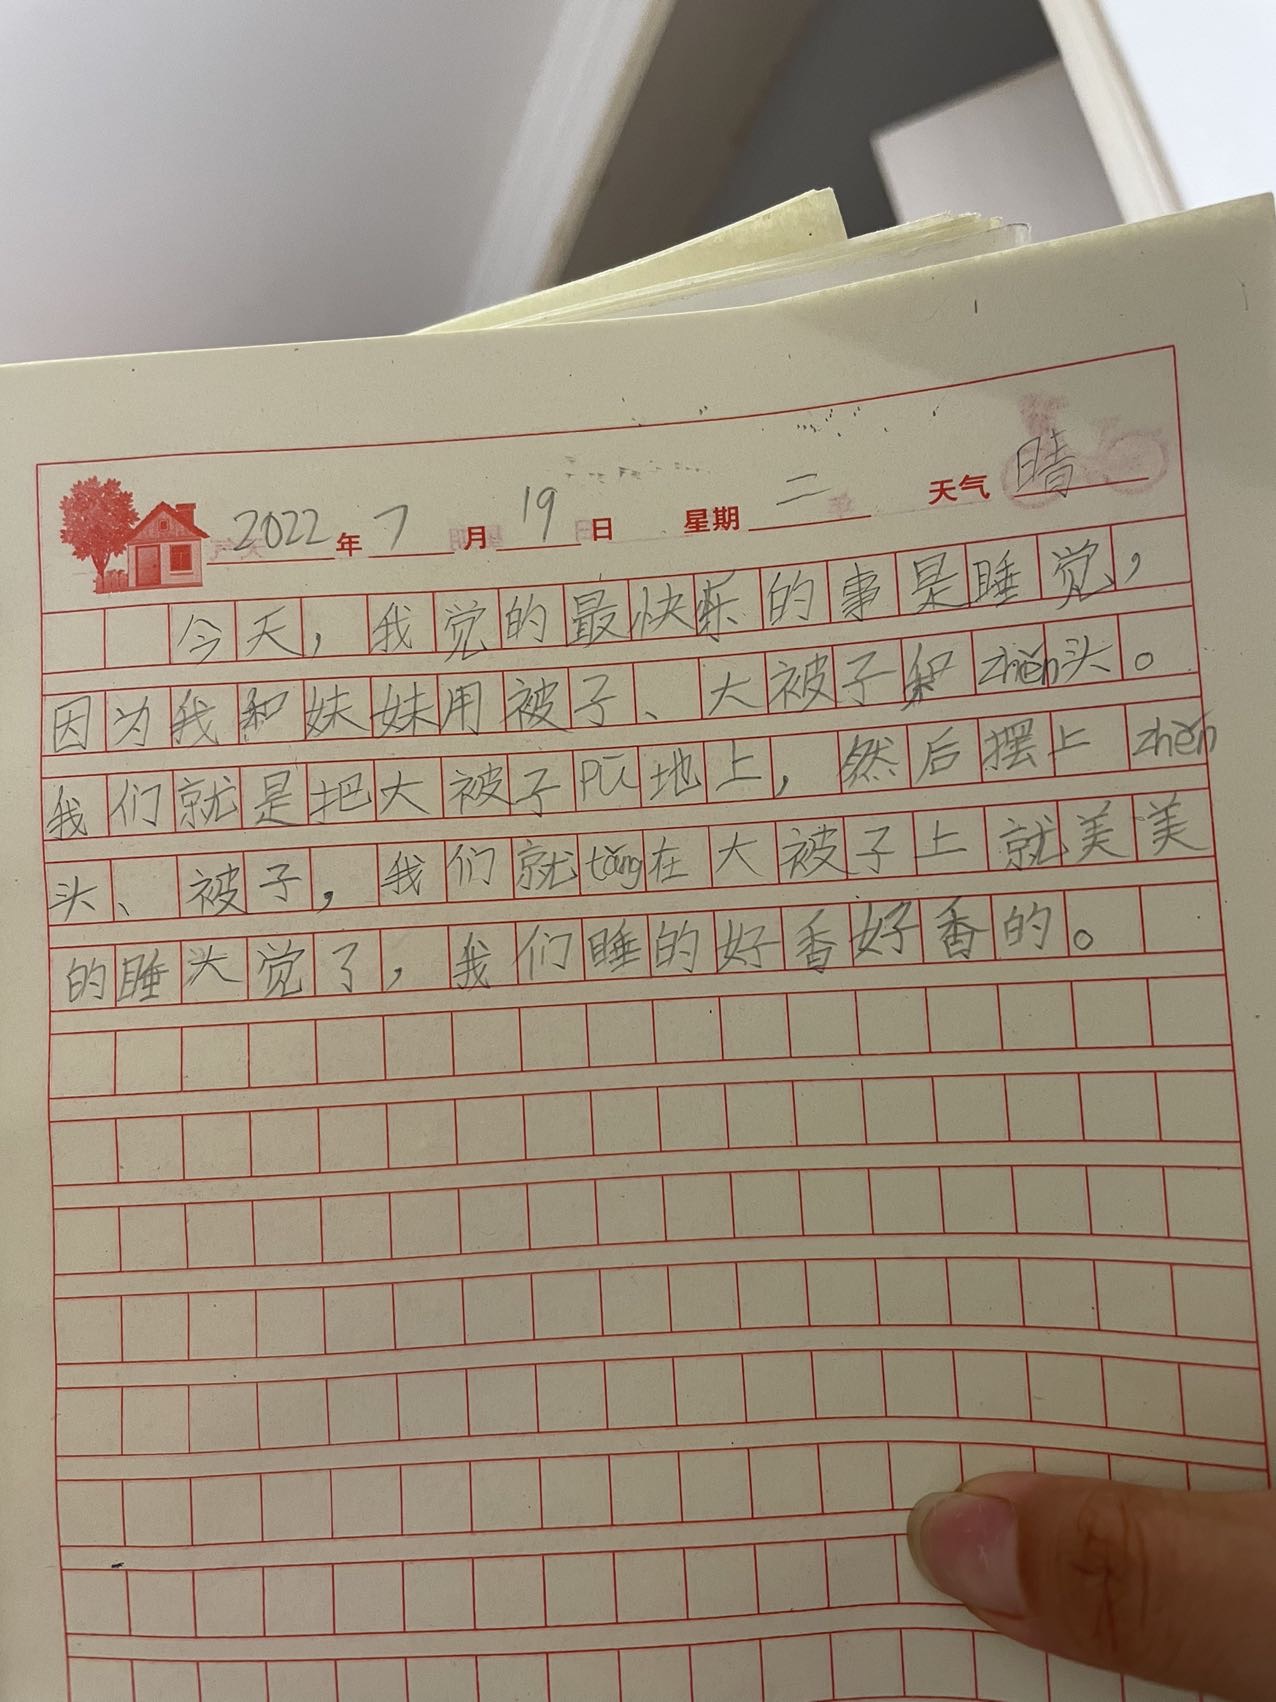 2022年7月19日 星期二 天气晴
今天，我觉的最快乐的事是睡觉，
因为我和妹妹用被子、大被子和zhěn头。
我们就是把大被子pū地上，然后摆上zhěn
头、被子，我们就tǎng在大被子上就美美
的睡头觉了，我们睡的好香好香的。